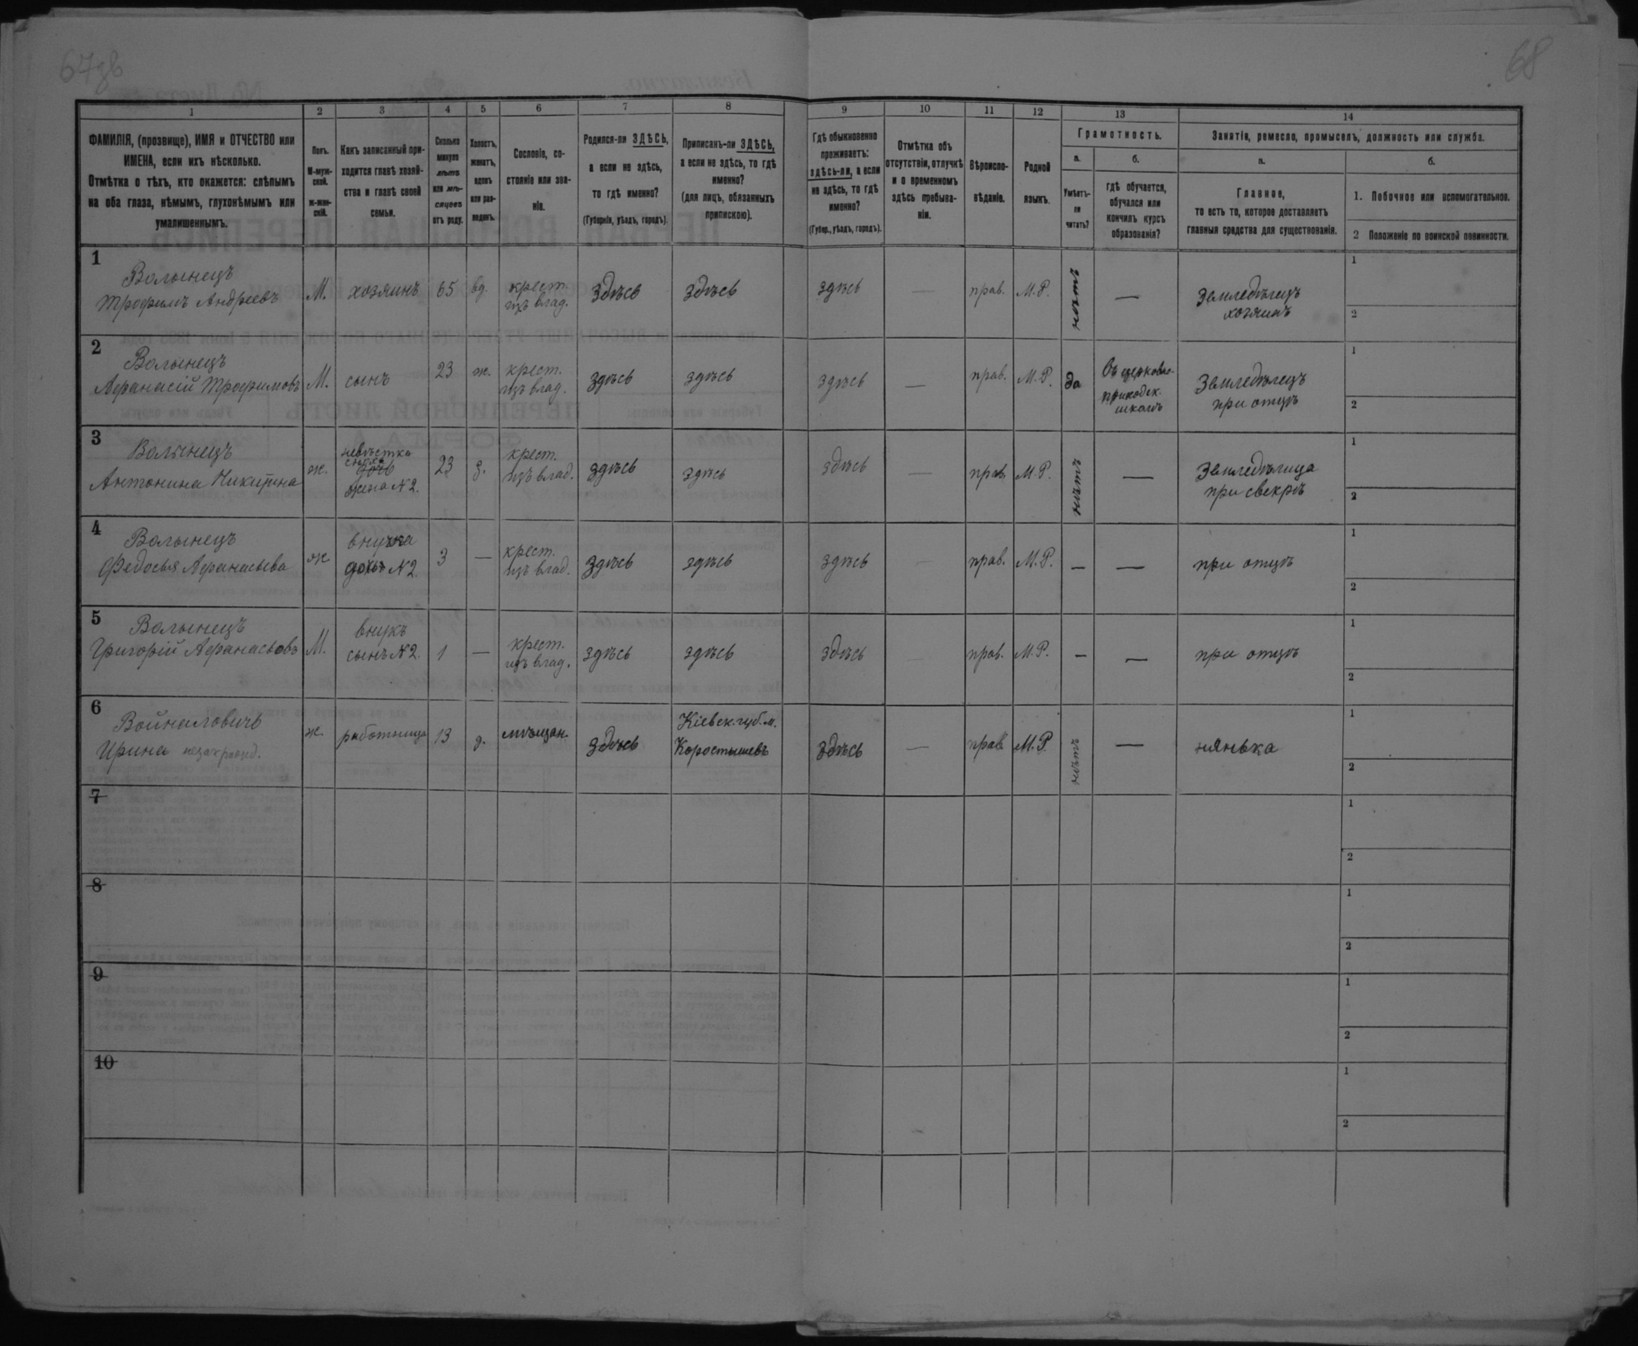 67зв
68
1
2
3
4
5
6
7
8
9
10
11
12
13
14
ФАМИЛІЯ, (прозвище), ИМЯ и ОТЧЕСТВО или
ИМЕНА, если ихъ нѣсколько.
Отмѣтка о тѣхъ, кто окажется: слѣпымъ
на оба глаза, нѣмымъ, глухонѣмымъ или
умалишеннымъ.
Полъ.
М-муж-
ской.
ж-жен-
скій.
Какъ записанный при-
ходится главѣ хозяй-
ства и главѣ своей
семьи.
Сколько
минуло
лѣтъ
или мѣ-
сяцевъ
отъ роду.
Холостъ,
женатъ,
вдовъ
или раз-
веденъ.
Сословіе, со-
стояніе или зва-
ніе.
Родился-ли ЗДѢСЬ,
а если не здѣсь,
то гдѣ именно?
(Губернія, уѣздъ, городъ).
Приписанъ-ли ЗДѢСЬ,
а если не здѣсь, то гдѣ
именно?
(для лицъ, обязанныхъ
припискою).
Гдѣ обыкновенно
проживаетъ:
здѣсь-ли, а если
не здѣсь, то гдѣ
именно?
(Губер., уѣздъ, городъ).
Отмѣтка объ
отсутствіи, отлучкѣ
и о временномъ
здѣсь пребыва-
ніи.
Вѣроиспо-
вѣданіе.
Родной
языкъ.
Грамотность.
а.
Умѣетъ-
ли
читать?
б.
гдѣ обучается,
обучался или
кончилъ курсъ
образованія?
Занятіе, ремесло, промыселъ, должность или служба.
а.
Главное,
то есть то, которое доставляетъ
главныя средства для существованія.
б.
1. Побочное или вспомогательное.
2 Положеніе по воинской повинности.
1
Волынецъ
Трофимъ Андреевъ
М. хозяинъ 65 вд. крест.
изъ влад.
здѣсь здѣсь здѣсь — прав. М.Р. нѣтъ — Земледѣлецъ
хозяинъ
1
2
2
Волынецъ
Афанасій Трофимовъ
М. сынъ 23 ж. крест.
изъ влад.
здѣсь здѣсь здѣсь — прав. М.Р. да Въ церковно-
приходск.
школѣ
Земледѣлецъ
при отцѣ
1
2
3
Волынецъ
Антонина Никитина
ж. невѣстка
жена №2.
23 з. крест.
изъ влад.
здѣсь здѣсь здѣсь — прав. М.Р. нѣтъ — Земледѣлица
при свекрѣ
1
2
4
Волынецъ
Федосья Афанасьева
ж внучка
дочь №2
3 — крест.
изъ влад.
здѣсь здѣсь здѣсь — прав. М.Р. — — при отцѣ
1
2
5
Волынецъ
Григорій Афанасьевъ
М. внукъ
сынъ №2.
1 — крест.
изъ влад.
здѣсь здѣсь здѣсь прав. М.Р. — — при отцѣ
1
2
6
Войналовичъ
Ирина незакрожд.
ж. работница 13 д. мѣщан. здѣсь Кіевск.губ.м.
Коростышевъ
здѣсь — прав. М.Р. нѣтъ — нянька
1
2
7
1
2
8
1
2
9
1
2
10
1
2